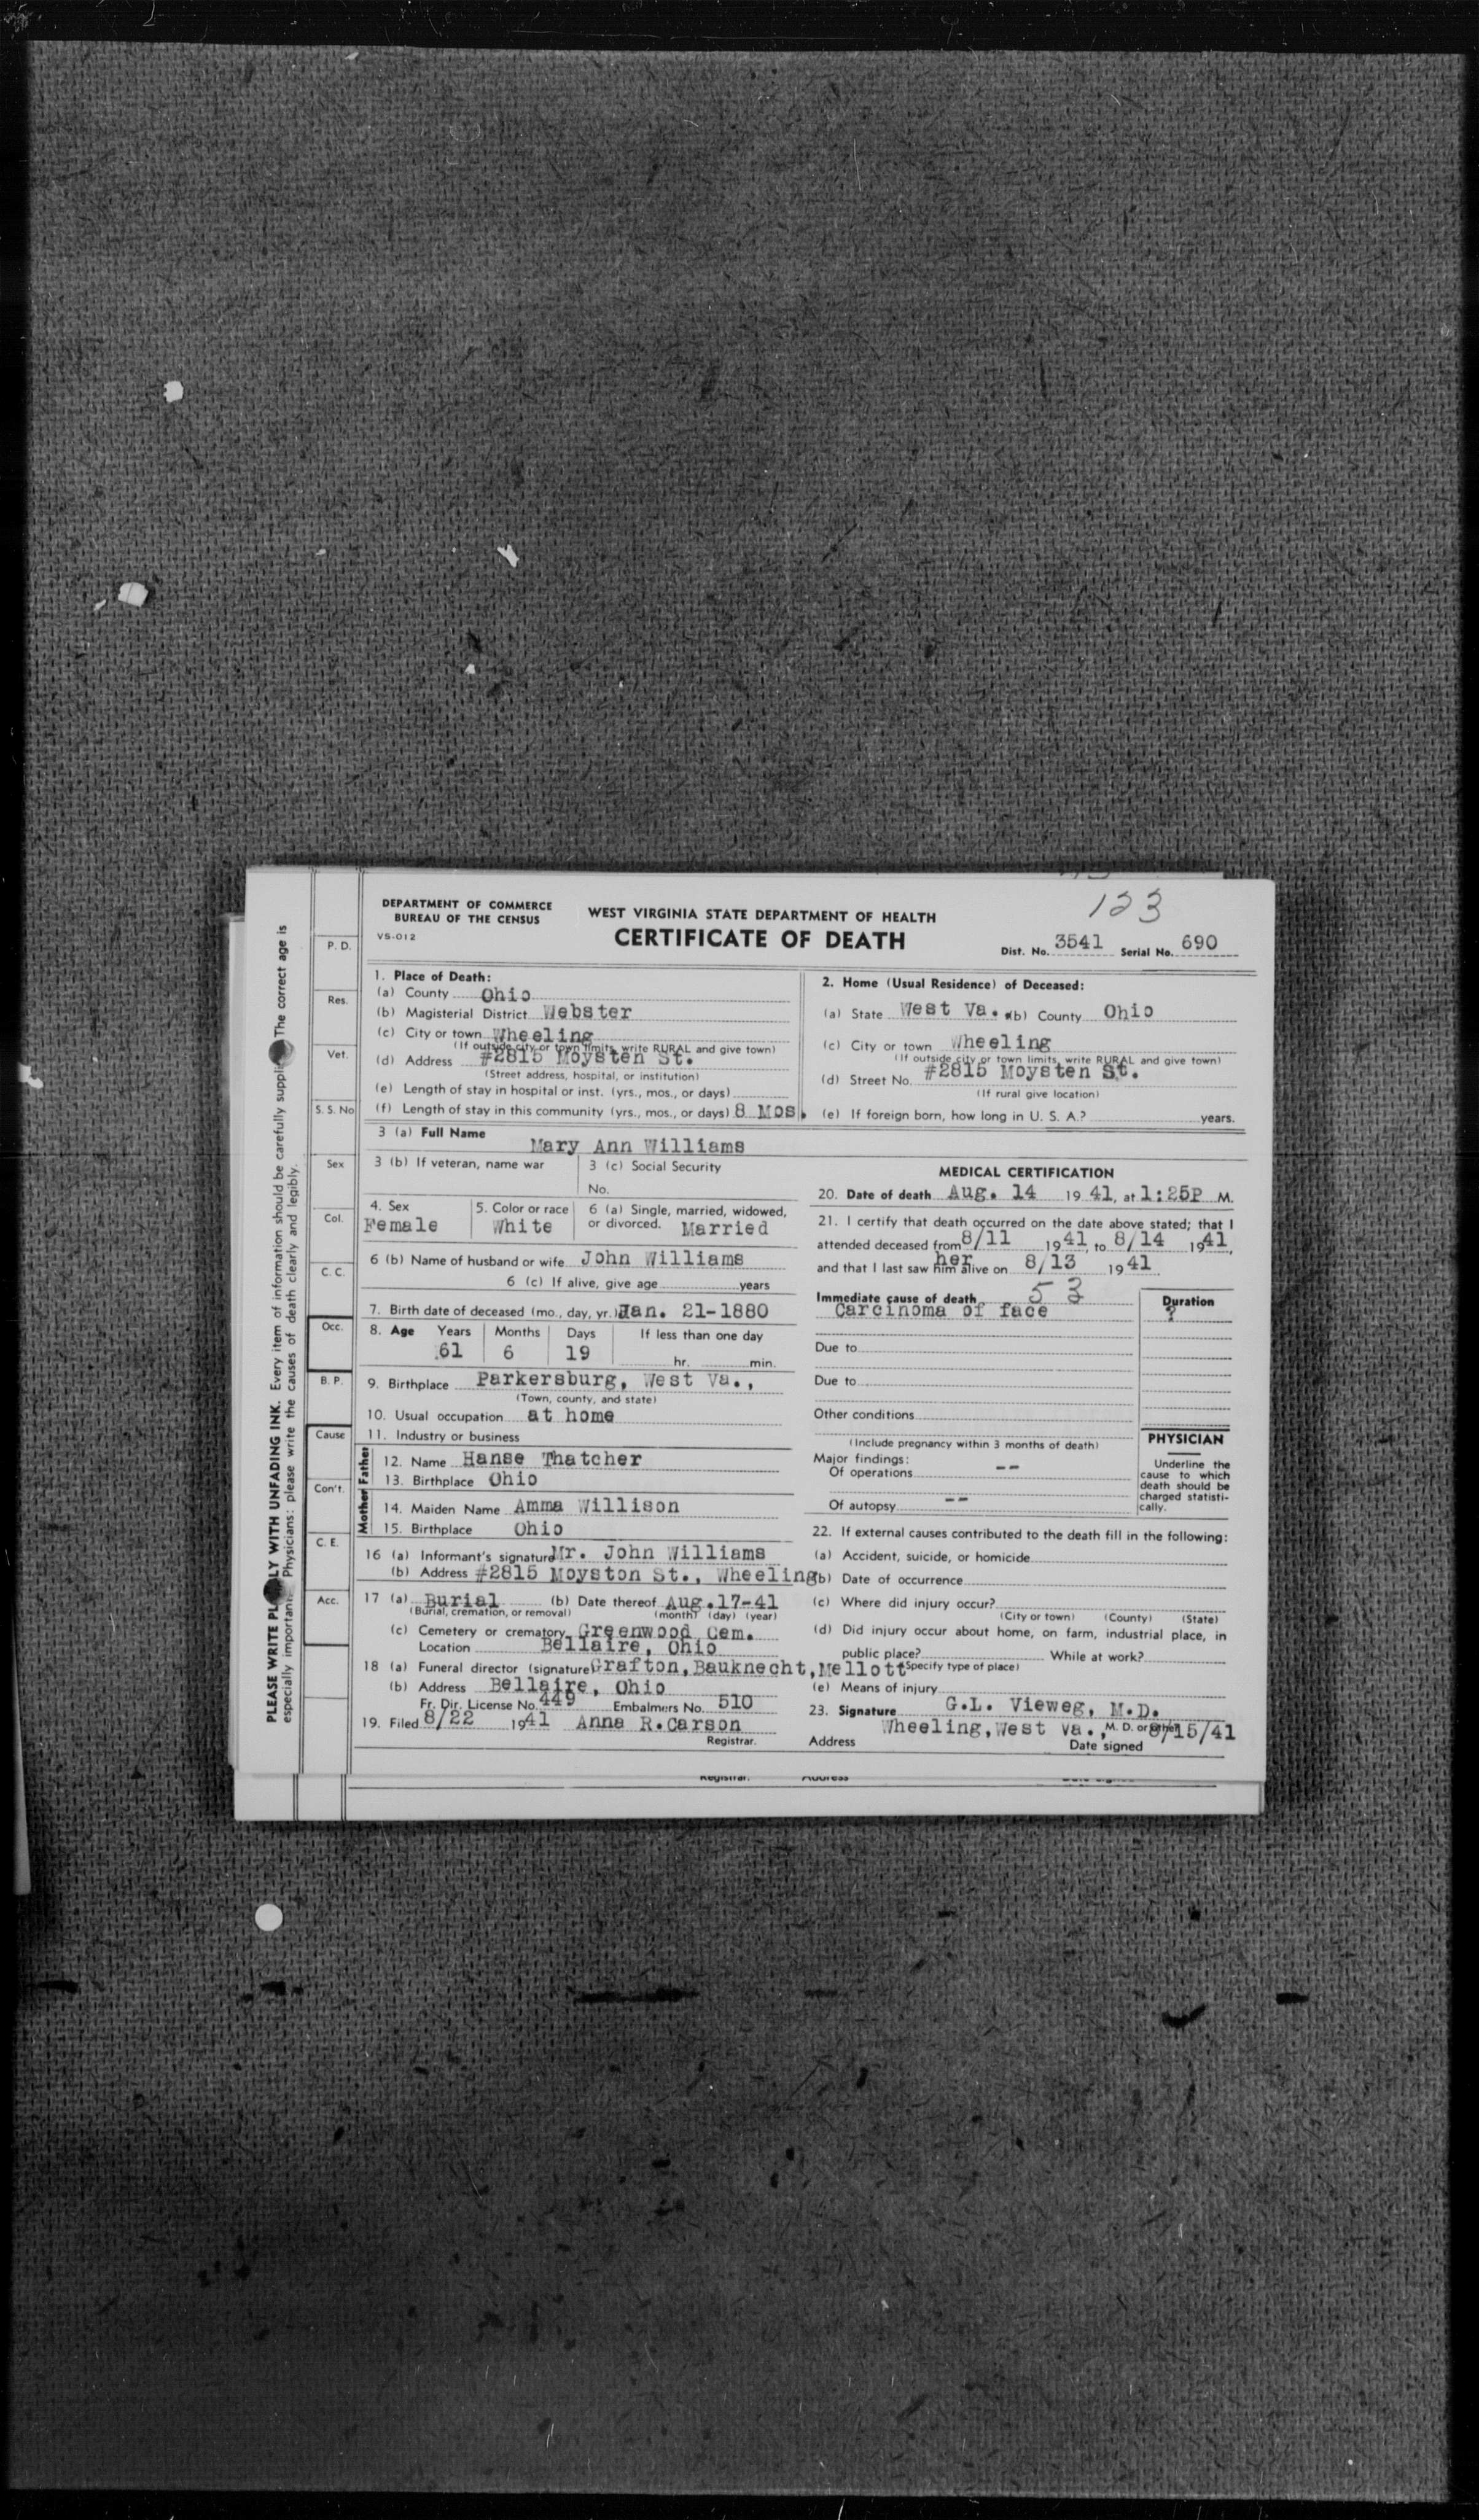 123
DEPARTMENT OF COMMERCE
BUREAU OF THE CENSUS
VS-012
WEST VIRGINIA STATE DEPARTMENT OF HEALTH
CERTIFICATE OF DEATH
Dist. No. 3541 Serial No. 690
PLEASE WRITE PLAINLY WITH UNFADING INK. Every item of information should be carefully supplied. The correct age is
especially important. Physicians: please write the causes of death clearly and legibly.
P. D.
Res.
Vet.
S. S. No
Sex
Col.
C. C.
Occ.
B. P.
Cause
Con't.
C. E.
Acc.
1. Place of Death:
(a) County Ohio
(b) Magisterial District Webster
(c) City or town Wheeling
(If outside city or town limits, write RURAL and give town)
(d) Address #2815 Moysten St.
(Street address, hospital, or institution)
(e) Length of stay in hospital or inst. (yrs., mos., or days)
(f) Length of stay in this community (yrs., mos., or days) 8 Mos.
2. Home (Usual Residence) of Deceased:
(a) State West Va. (b) County Ohio
(c) City or town Wheeling
(If outside city or town limits, write RURAL and give town)
(d) Street No. #2815 Moysten St.
(If rural give location)
(e) If foreign born, how long in U. S. A.? years.
3 (a) Full Name
Mary Ann Williams
3 (b) If veteran, name war
3 (c) Social Security
No.
4. Sex
Female
5. Color or race
White
6 (a) Single, married, widowed,
or divorced. Married
6 (b) Name of husband or wife John Williams
6 (c) If alive, give age years
7. Birth date of deceased (mo., day, yr.) Jan. 21-1880
8. Age Years Months Days If less than one day
61 6 19 hr. min.
9. Birthplace Parkersburg, West Va.,
(Town, county, and state)
10. Usual occupation at home
11. Industry or business
Father
12. Name Hanse Thatcher
13. Birthplace Ohio
Mother
14. Maiden Name Amma Willison
15. Birthplace Ohio
16 (a) Informant's signature Mr. John Williams
(b) Address #2815 Moyston St., Wheeling
17 (a) Burial (b) Date thereof Aug.17-41
(Burial, cremation, or removal) (month) (day) (year)
(c) Cemetery or crematory Greenwood Cem.
Location Bellaire, Ohio
18 (a) Funeral director (signature) Grafton, Bauknecht, Mellott
(b) Address Bellaire, Ohio
Fr. Dir. License No. 449 Embalmers No. 510
19. Filed 8/22 1941 Anna R.Carson
Registrar.
MEDICAL CERTIFICATION
20. Date of death Aug. 14 1941, at 1:25P M.
21. I certify that death occurred on the date above stated; that I
attended deceased from 8/11 1941, to 8/14 1941,
and that I last saw him her alive on 8/13 1941
53
Immediate cause of death
Carcinoma of face
Duration
?
Due to
Due to
Other conditions
(Include pregnancy within 3 months of death)
Major findings:
Of operations --
Of autopsy --
PHYSICIAN
Underline the
cause to which
death should be
charged statisti-
cally.
22. If external causes contributed to the death fill in the following:
(a) Accident, suicide, or homicide
(b) Date of occurrence
(c) Where did injury occur?
(City or town) (County) (State)
(d) Did injury occur about home, on farm, industrial place, in
public place? While at work?
(Specify type of place)
(e) Means of injury
23. Signature G.L. Vieweg, M.D.
M. D. or other
Address Wheeling, West Va., Date signed 8/15/41
Registrar. Address